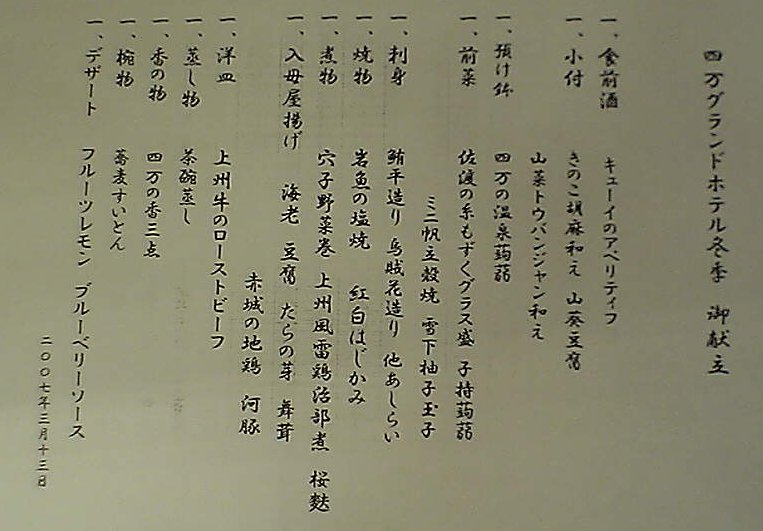 四万グランドホテル冬季　御献立
一、食前酒　キューイのアペリティフ
一、小付　きのこ胡麻和え　山葵豆腐
山菜トウバンジャン和え
一、預け鉢　四万の温泉蒟蒻
一、前菜　佐渡の糸もずくグラス盛　子持蒟蒻
ミニ帆立殻焼　雪下柚子玉子
一、刺身　鮪平造り　烏賊花造り　他あしらい
一、焼物　岩魚の塩焼　紅白はじかみ
一、煮物　穴子野菜巻　上州風雷鶏治部煮　桜麩
一、入母屋揚げ　海老　豆腐　たらの芽　舞茸
赤城の地鶏　河豚
一、洋皿　上州牛のローストビーフ
一、蒸し物　茶碗蒸し
一、香の物　四万の香三点
一、椀物　蕎麦すいとん
一、デザート　フルーツレモン　ブルーベリーソース
二００七年三月十三日